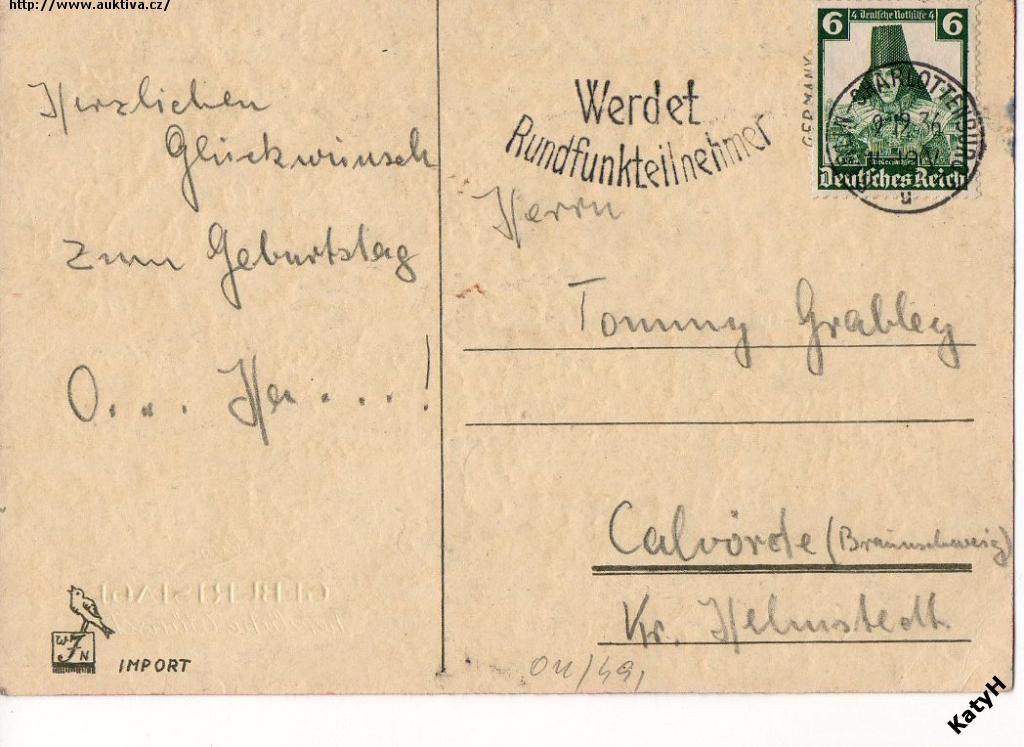 http://www.auktiva.cz/
Herzlichen
Glückwunsch
zum Geburtstag
O... He....!
Werdet
Rundfunkteilnehmer
GERMANY
6 4 Deutsche Nothilfe 4 6
Deutsches Reich
CHARLOTTENBURG
u
Herrn
Tommy Grabley
Calvörde (Braunschweig)
Kr. Helmstedt
GEBURTSTAGE
W
N
IMPORT
KatyH